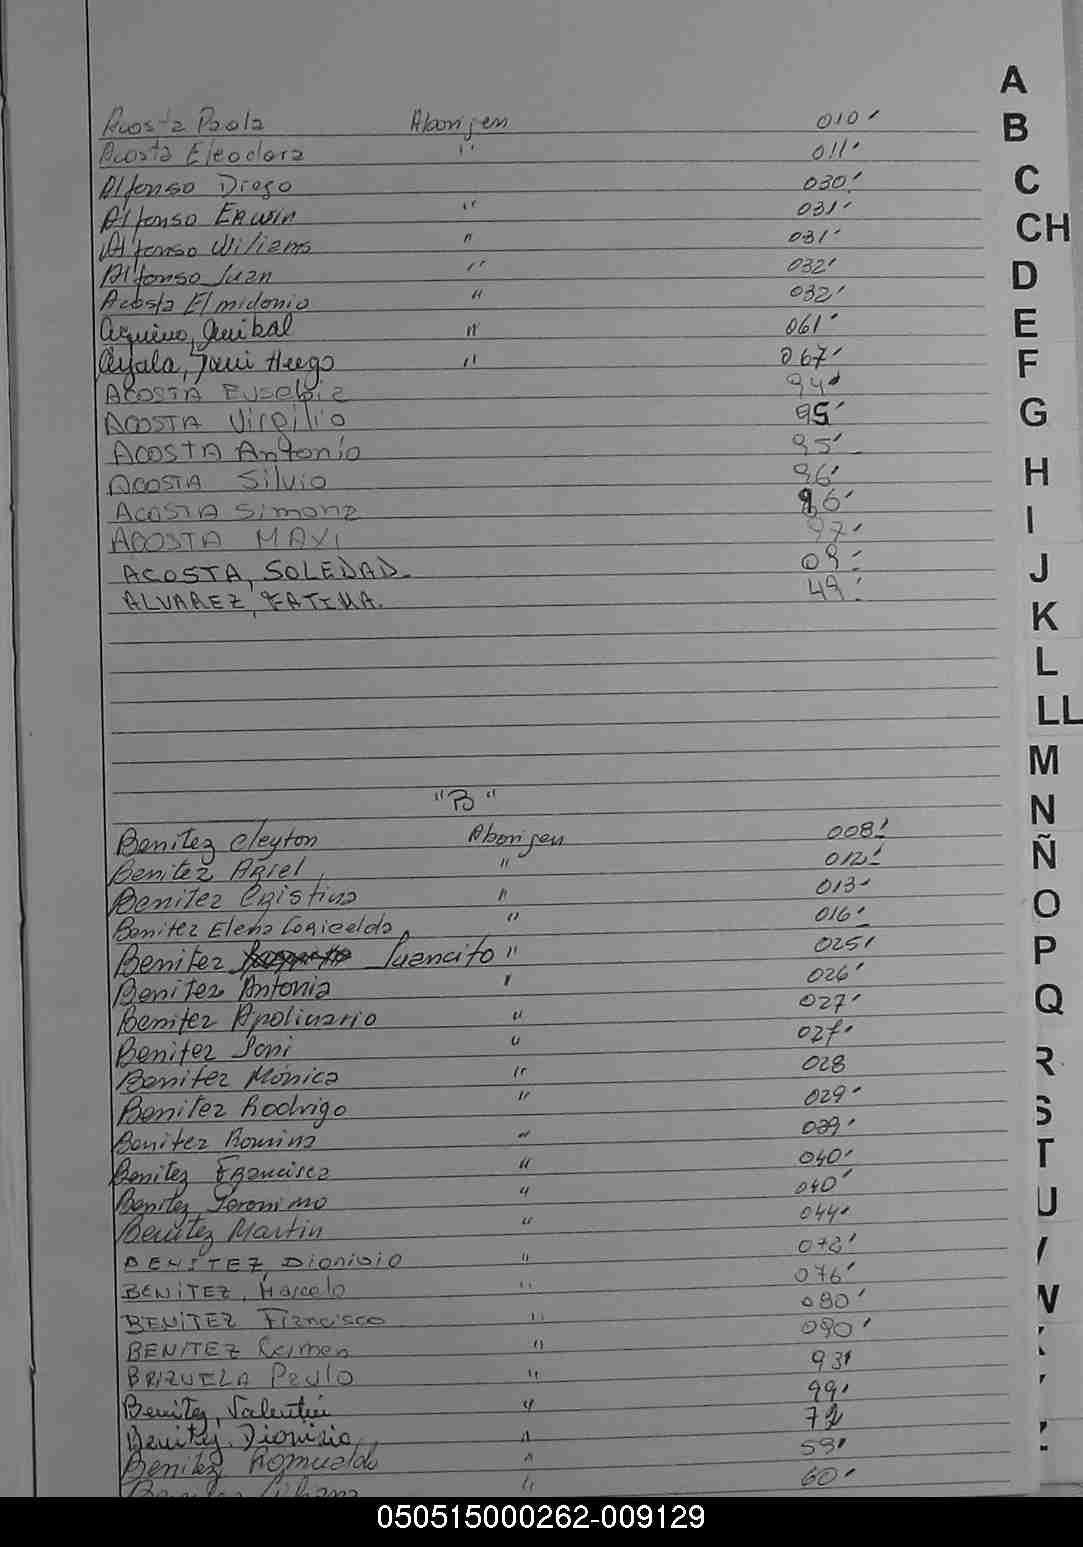 Acosta Paola Aborigen 010
Acosta Eleodora " 011
Alfonso Diego 030
Alfonso Erwin " 031
Alfonso Wiliams " 031
Alfonso Juan " 032
Acosta Elmidonio " 032
Aquino, Anibal " 061
Ayala, Hugo " 067
ACOSTA Eusebia 94
ACOSTA Virgilio 95
ACOSTA Antonio 95
ACOSTA Silvio 96
ACOSTA Simona 96
ACOSTA MAXI 97
ACOSTA, SOLEDAD. 09
ALVAREZ, FATIMA. 49
"B"
Benitez Cleyton Aborigen 008
Benitez Ariel " 012
Benitez Cristina " 013
Benitez Elena Coricelda " 016
Benitez Juancito " 025
Benitez Antonia " 026
Benitez Apolinario " 027
Benitez Joni " 027
Benitez Mónica " 028
Benitez Rodrigo " 029
Benitez Romina " 039
Benitez Francisca " 040
Benitez Jeronimo " 040
Benitez Martin " 044
BENITEZ, Dionisio "
BENITEZ, Marcelo " 076
BENITEZ Francisco " 080
BENITEZ Carmen " 090
BRIZUELA Paulo " 93
Benitez, Valentin " 99
Benitez, Dionisio " 72
Benitez Romualdo " 59
" 60
A
B
C
CH
D
E
F
G
H
I
J
K
L
LL
M
N
Ñ
O
P
Q
R
S
T
U
V
W
050515000262-009129